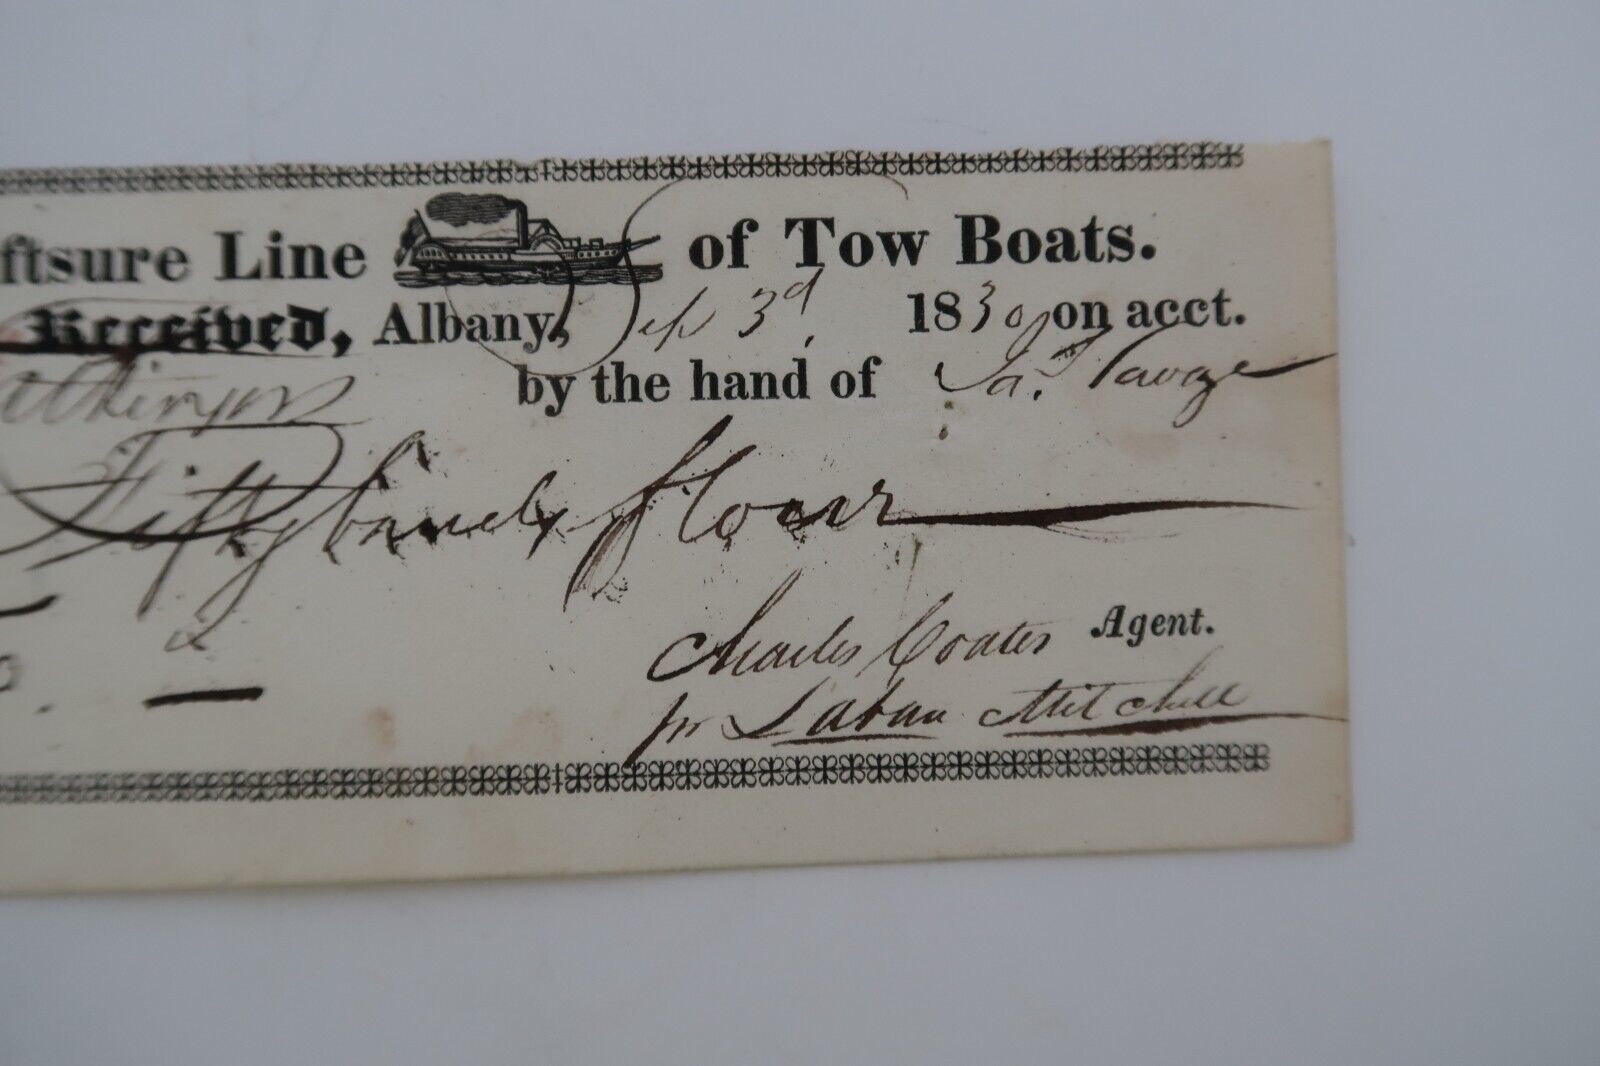 ftsure Line of Tow Boats.
Received, Albany, Sep 3d 1830 on acct.
by the hand of Ja. Savage
Fifty barrels flour
Charles Coates Agent.
pr Laban Mitchell